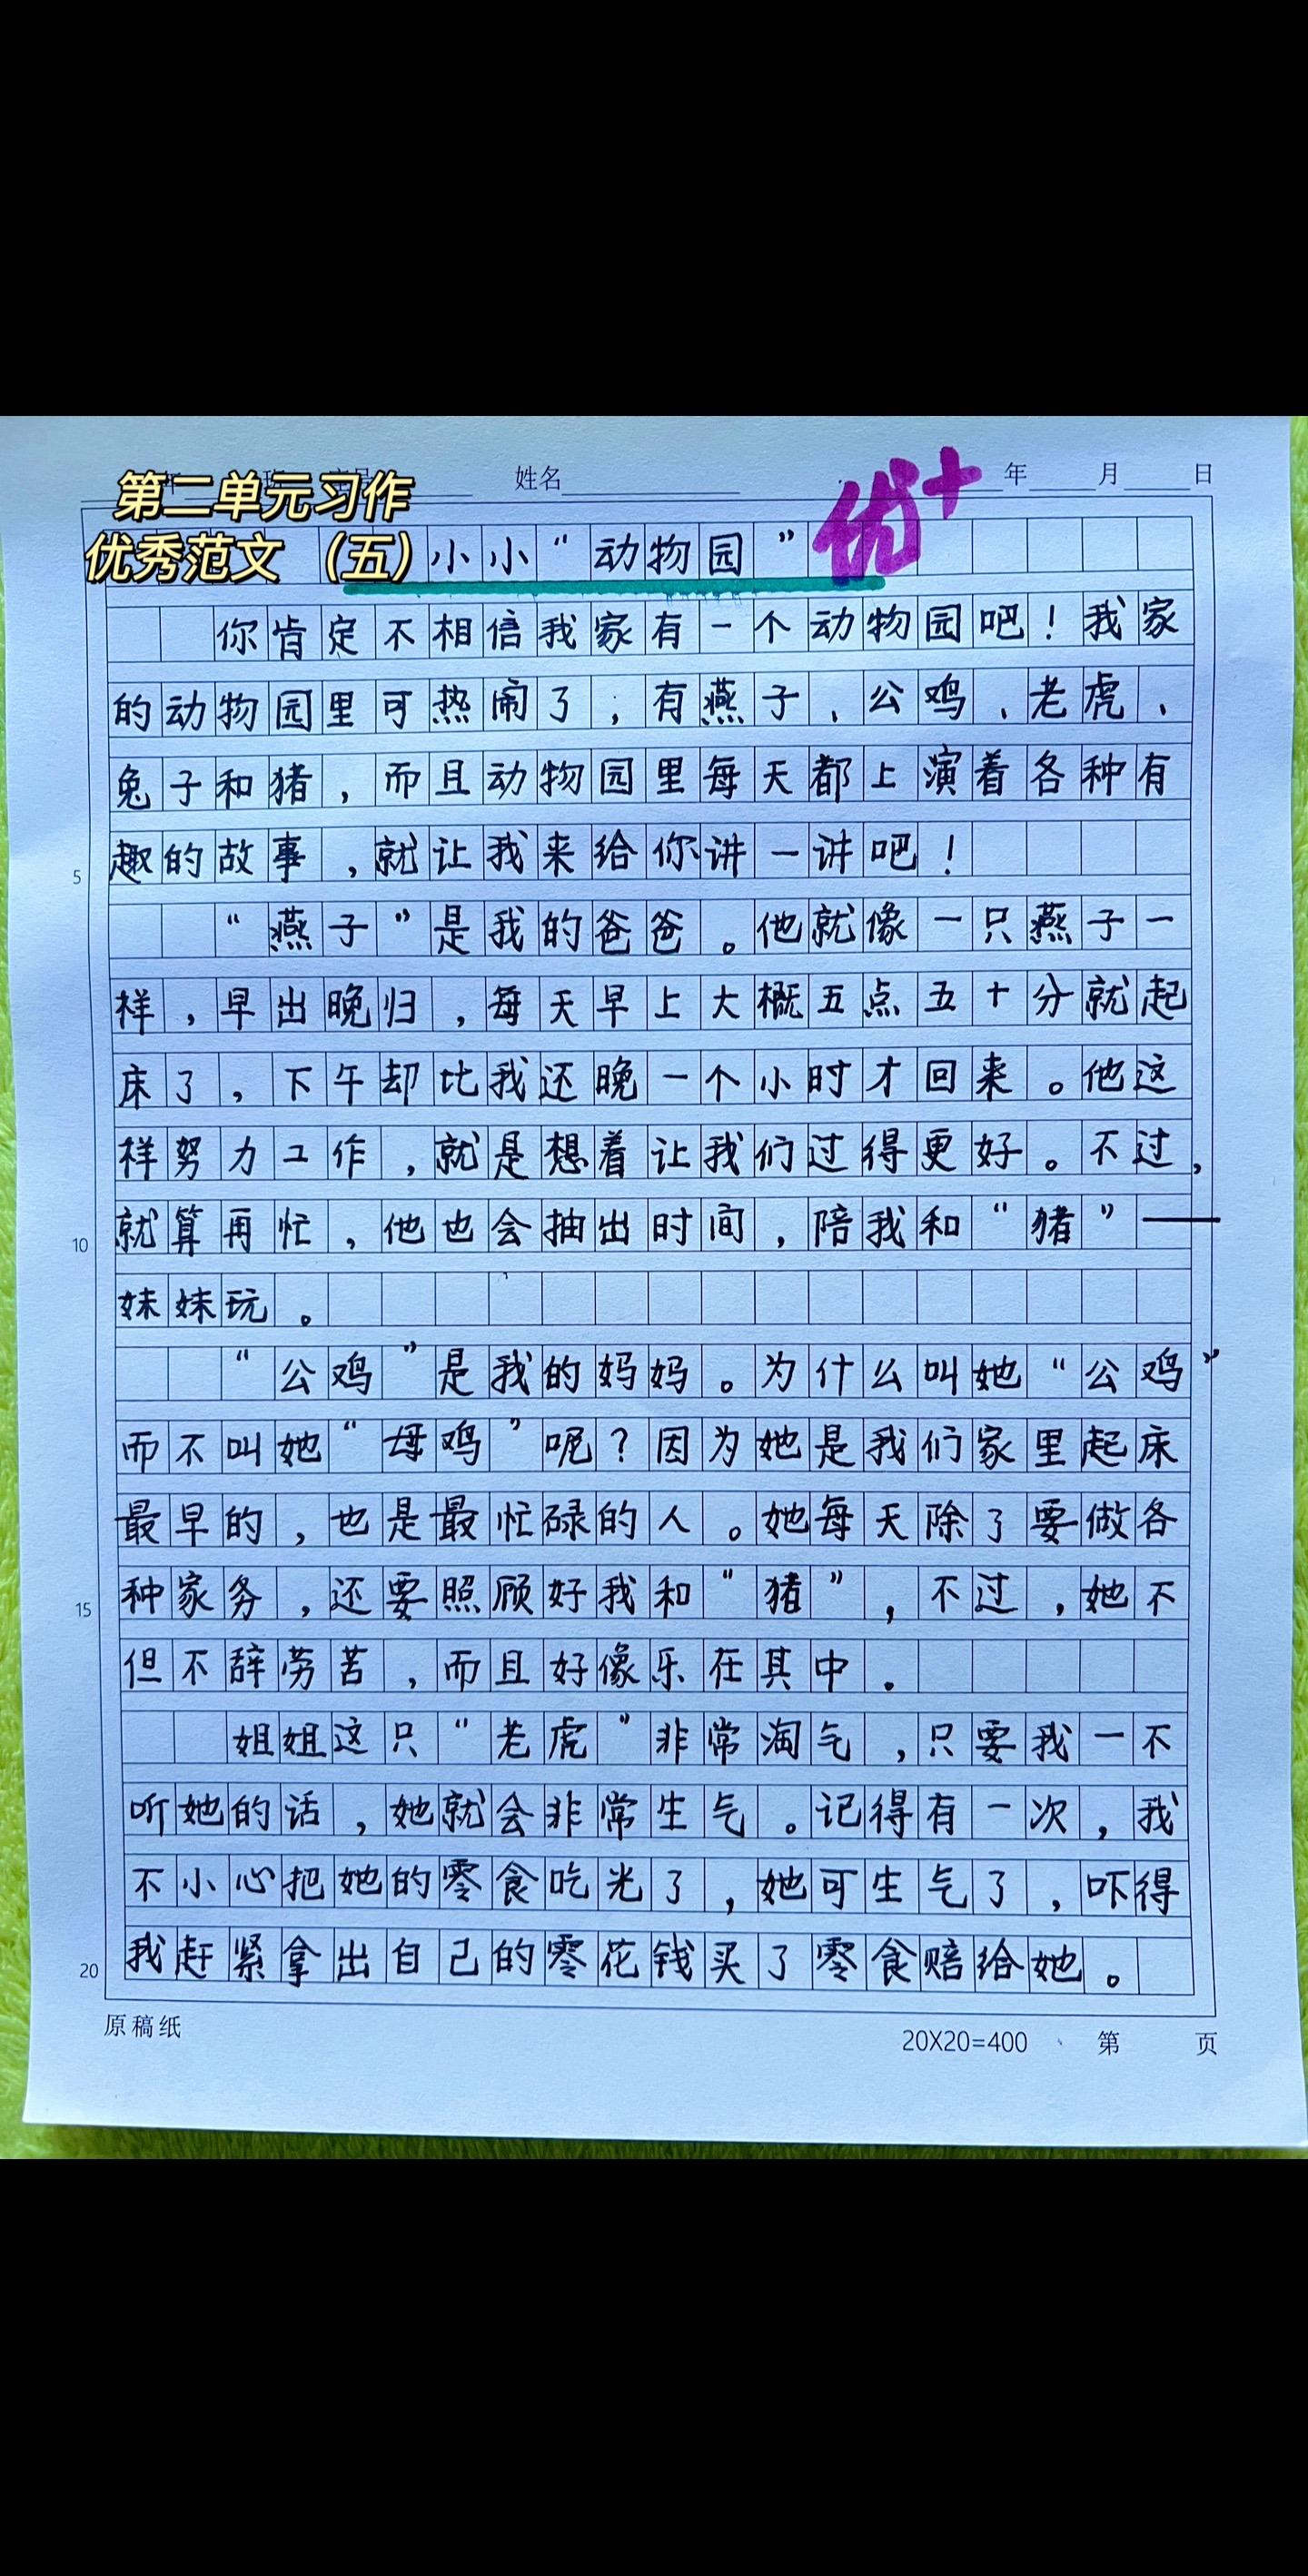 年 班 姓名 年 月 日
第二单元习作
优秀范文（五）
小小“动物园”
优+
你肯定不相信我家有一个动物园吧！我家
的动物园里可热闹了，有燕子、公鸡、老虎、
兔子和猪，而且动物园里每天都上演着各种有
趣的故事，就让我来给你讲一讲吧！
5
“燕子”是我的爸爸。他就像一只燕子一
样，早出晚归，每天早上大概五点五十分就起
床了，下午却比我还晚一个小时才回来。他这
样努力工作，就是想着让我们过得更好。不过，
就算再忙，他也会抽出时间，陪我和“猪”——
10
妹妹玩。
“公鸡”是我的妈妈。为什么叫她“公鸡”
而不叫她“母鸡”呢？因为她是我们家里起床
最早的，也是最忙碌的人。她每天除了要做各
种家务，还要照顾好我和“猪”，不过，她不
15
但不辞劳苦，而且好像乐在其中。
姐姐这只“老虎”非常淘气，只要我一不
听她的话，她就会非常生气。记得有一次，我
不小心把她的零食吃光了，她可生气了，吓得
我赶紧拿出自己的零花钱买了零食赔给她。
20
原稿纸
20X20=400 第 页